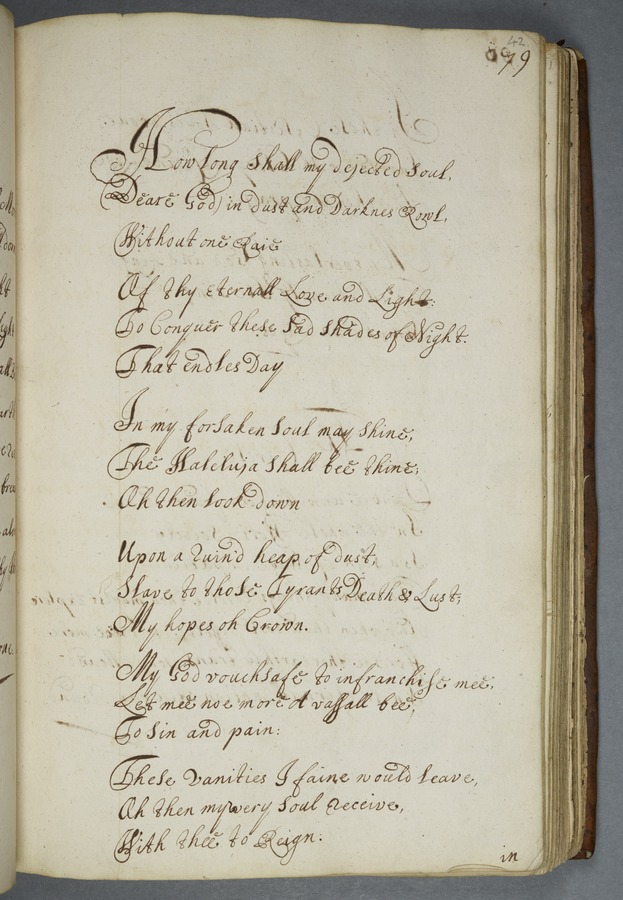 42
79
How Long shall my dejected Soul,
(Deare God) in dust and Darknes Rowl,
Without one Raie
Of thy eternall Love and Light:
To Conquer these sad shades of Night.
That endles Day
In my forsaken soul may shine,
The Haleluja shall bee thine;
Oh then look down
Upon a ruin'd heap of dust,
Slave to those Tyrants Death & Lust,
My hopes oh Crown.
My God vouchsafe to infranchise mee,
Let mee noe more A vassall bee,
To sin and pain:
These vanities I faine would leave,
Oh then my very soul receive,
With thee to Reign:
in